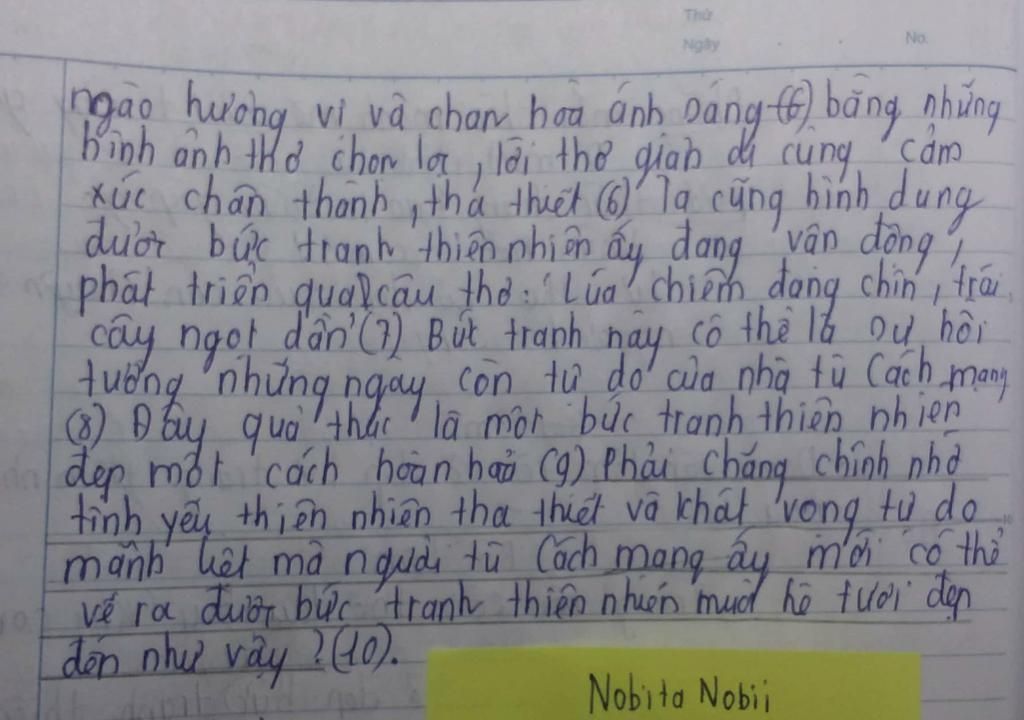 Thứ
Ngày
No.
ngào hương vị và chan hoà ánh sáng (6) bằng những
hình ảnh thơ chọn lọc, lời thơ giản dị cùng cảm
xúc chân thành, tha thiết (6) Ta cũng hình dung
được bức tranh thiên nhiên ấy đang vận động,
phát triển qua câu thơ: "Lúa chiêm đang chín, trái
cây ngọt dần" (7) Bức tranh này có thể là sự hồi
tưởng những ngày còn tự do của nhà tù Cách mạng
(8) Đây quả thực là một bức tranh thiên nhiên
đẹp một cách hoàn hảo (9) Phải chăng chính nhờ
tình yêu thiên nhiên tha thiết và khát vọng tự do
mãnh liệt mà người tù Cách mạng ấy mới có thể
vẽ ra được bức tranh thiên nhiên mùa hè tươi đẹp
đến như vậy? (10).
Nobita Nobii